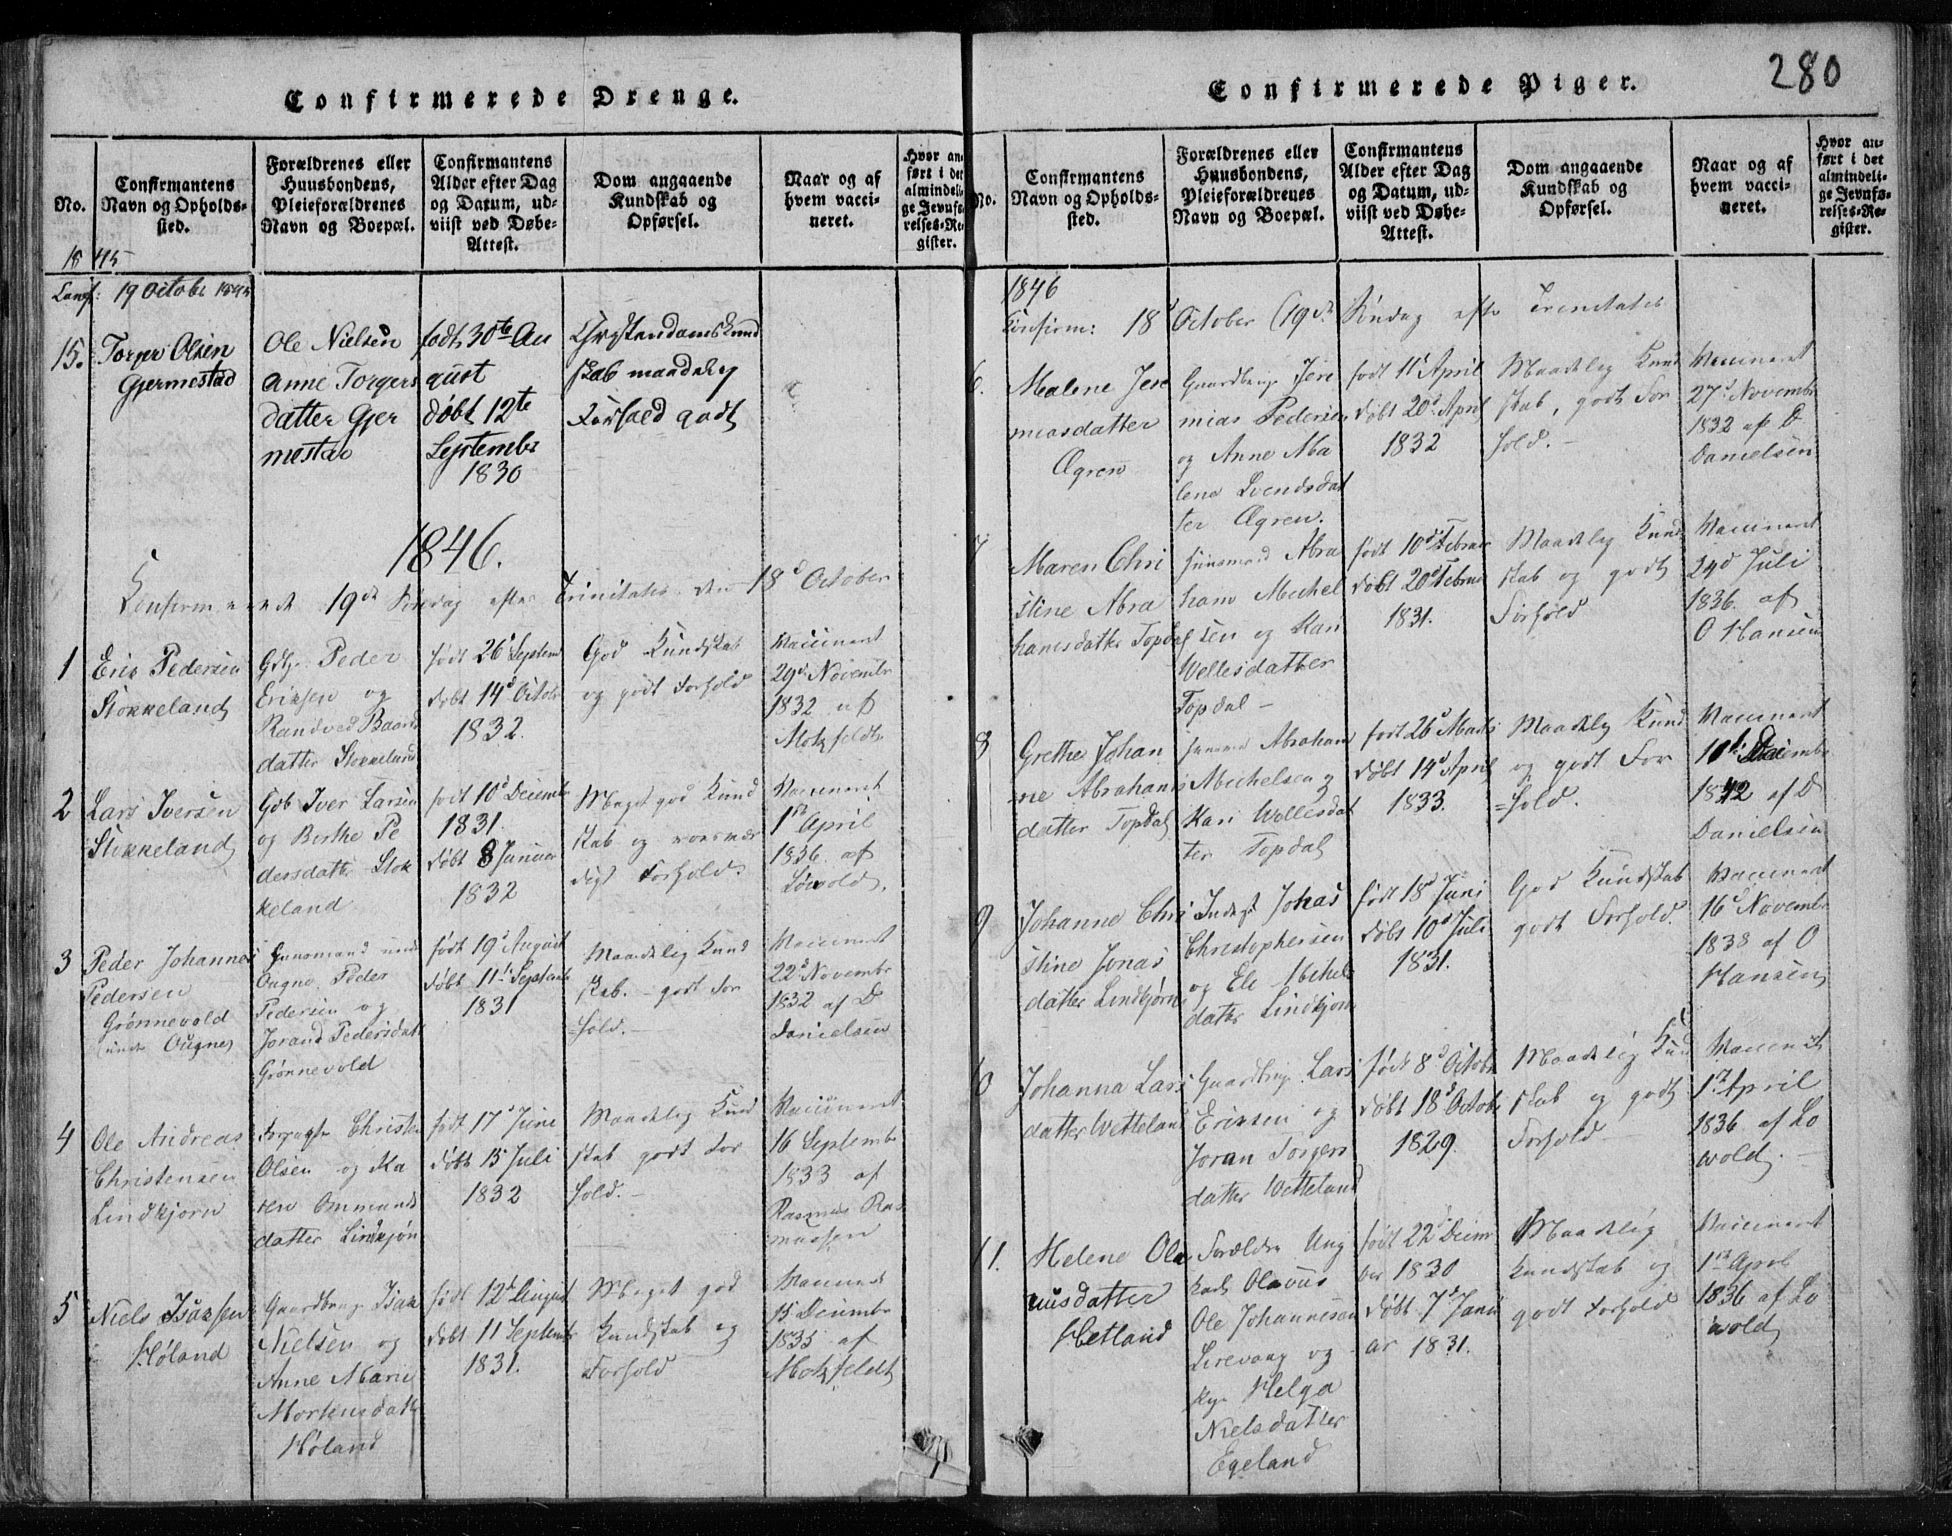 Confirmerede Drenge.
No.
Confirmantens
Navn og Opholds-
sted.
Forældrenes eller
Huusbondens,
Pleieforældrenes
Navn og Boepæl.
Confirmantens
Alder efter Dag
og Datum, ud-
viist ved Døbe-
Attest.
Dom angaaende
Kundskab og
Opførsel.
Naar og af
hvem vacci-
neret.
Hvor an-
ført i det
almindeli-
ge Jevnfø-
relses-Re-
gister.
1845
Conf: 19 Octobr 1845
15. Torger Olsen
Gjermestad
Ole Nielsen
Anne Torgers
datter Gjer
mestad
født 30te Au
gust
døbt 12te
Septembr
1830
Christendomskund
skab maadelig
Forhold godt
1846.
Confirmerede 19de Søndag efter Trinitatis den 18d October
1
Eric Pedersen
Stokkeland
Gdbr. Peder
Eriksen og
Randved Baards
datter Stokkeland
født 26d Septem
døbt 14d Octobr
1832.
God Kundskab
og godt Forhold
Vaccineret
29d Novembr
1832 af
Motzfeldt
2
Lars Iversen
Stokkeland
Gdb Iver Larsen
og Berthe Pe
dersdatter Stok
keland
født 10d Decembr
1831.
døbt 8 Januar
1832
Meget god Kund
skab og roesvær
digt Forhold.
Vaccineret
1ste April
1836 af
Løwold.
3
Peder Johannes
Pedersen
Grønnevold
(under Ougne)
Huusmand under
Ougne, Peder
Pedersen og
Jorand Pedersdatt
Grønnevold
født 19d August
døbt 11t Septembr
1831
Maadelig Kund
skab. - godt For
=hold. -
Vaccineret
22d Novembr
1832 af D
Danielsen
4
Ole Andreas
Christensen
Lindkjorn
Christen
Olsen og Ka
ren Ommunds
datter Lindkjøn
født 17d Juni
døbt 15 Juli
1832
Maadelig Kund
skab godt For
hold. -
Vaccineret
16 Septembr
1833 af
Rasmus Ras
mussen
5
Niels Isaksen
Høland
Gaardbrug. Isak
Nielsen og
Anne Marie
Mortensdatt
Høland
født 12d August
døbt 11 Septembr
1831.
Meget god
Kundskab og
Forhold
Vaccineret
15 Decembr
1835 af
Motzfeldt
280
Confirmerede Piger.
No.
Confirmantens
Navn og Opholds-
sted.
Forældrenes eller
Huusbondens,
Pleieforældrenes
Navn og Boepæl.
Confirmantens
Alder efter Dag
og Datum, ud-
viist ved Døbe-
Attest.
Dom angaaende
Kundskab og
Opførsel.
Naar og af
hvem vacci-
neret.
Hvor an-
ført i det
almindeli-
ge Jevnfø-
relses-Re-
gister.
1846
Confirm: 18d October (19de Søndag efter Trenitatis
6.
Malene Jere
miasdatter
Ægren
Gaardbrug Jere
mias Pedersen
og Anne Ma
lene Svendsdat
ter Ægren.
født 11t April
døbt 20d April
1832
Maadelig Kund
skab, godt For
hold. -
Vaccineret
27d Novembr
1832 af D
Danielsen
7
Maren Chri
stine Abra
hamsdatter Topdal
Huusmand Abra
ham Michel
sen og Kari
Wellesdatter
Topdal -
født 10d Februar
døbt 20d Februar
1831.
Maadelig Kund
skab og godt
Forhold
Vaccineret
24d Juli
1836. af
O Hansen
8
Grethe Johan
ne Abrahams
datter Topdal
Abraham
Michelsen og
Kari Wellesdat
ter Topdal
født 26d Marts
døbt 14d April
1833.
Maadelig Kund
og godt For
=hold.
Vaccineret
10de Decembr
1842 af D
Danielsen
9
Johanne Chri
stine Jonas
datter Lindkjørn
Inderst Johas
Christophersen
og Ele Michels
datter Lindkjorn
født 18d Juni
døbt 10d Juli
1831.
God Kundskab
godt Forhold.
Vaccineret
16d Novembr
1838 af O
Hansen
10
Johanna Lars
datter Wetteland
Gaardbrug. Lars
Eriksen og
Joran Torgers
datter Wetteland
født 8d Octobr
døbt 18d Octobr
1829.
Maadelig Kund
skab og godt
Forhold -
Vaccineret
1ste April
1836 af Lo
wold. -
11.
Helene Ola
vusdatter
Hetland
Forældre Ung
karl Olavus
Ole Johannesen
Lirevaag og
Pige Helga
Nielsdatter
Egeland
født 22d Decem
ber 1830
døbt 7d Janu
ar 1831.
Maadelig
Kundskab og
godt Forhold
Vaccineret
1ste April
1836 af Lo
wold